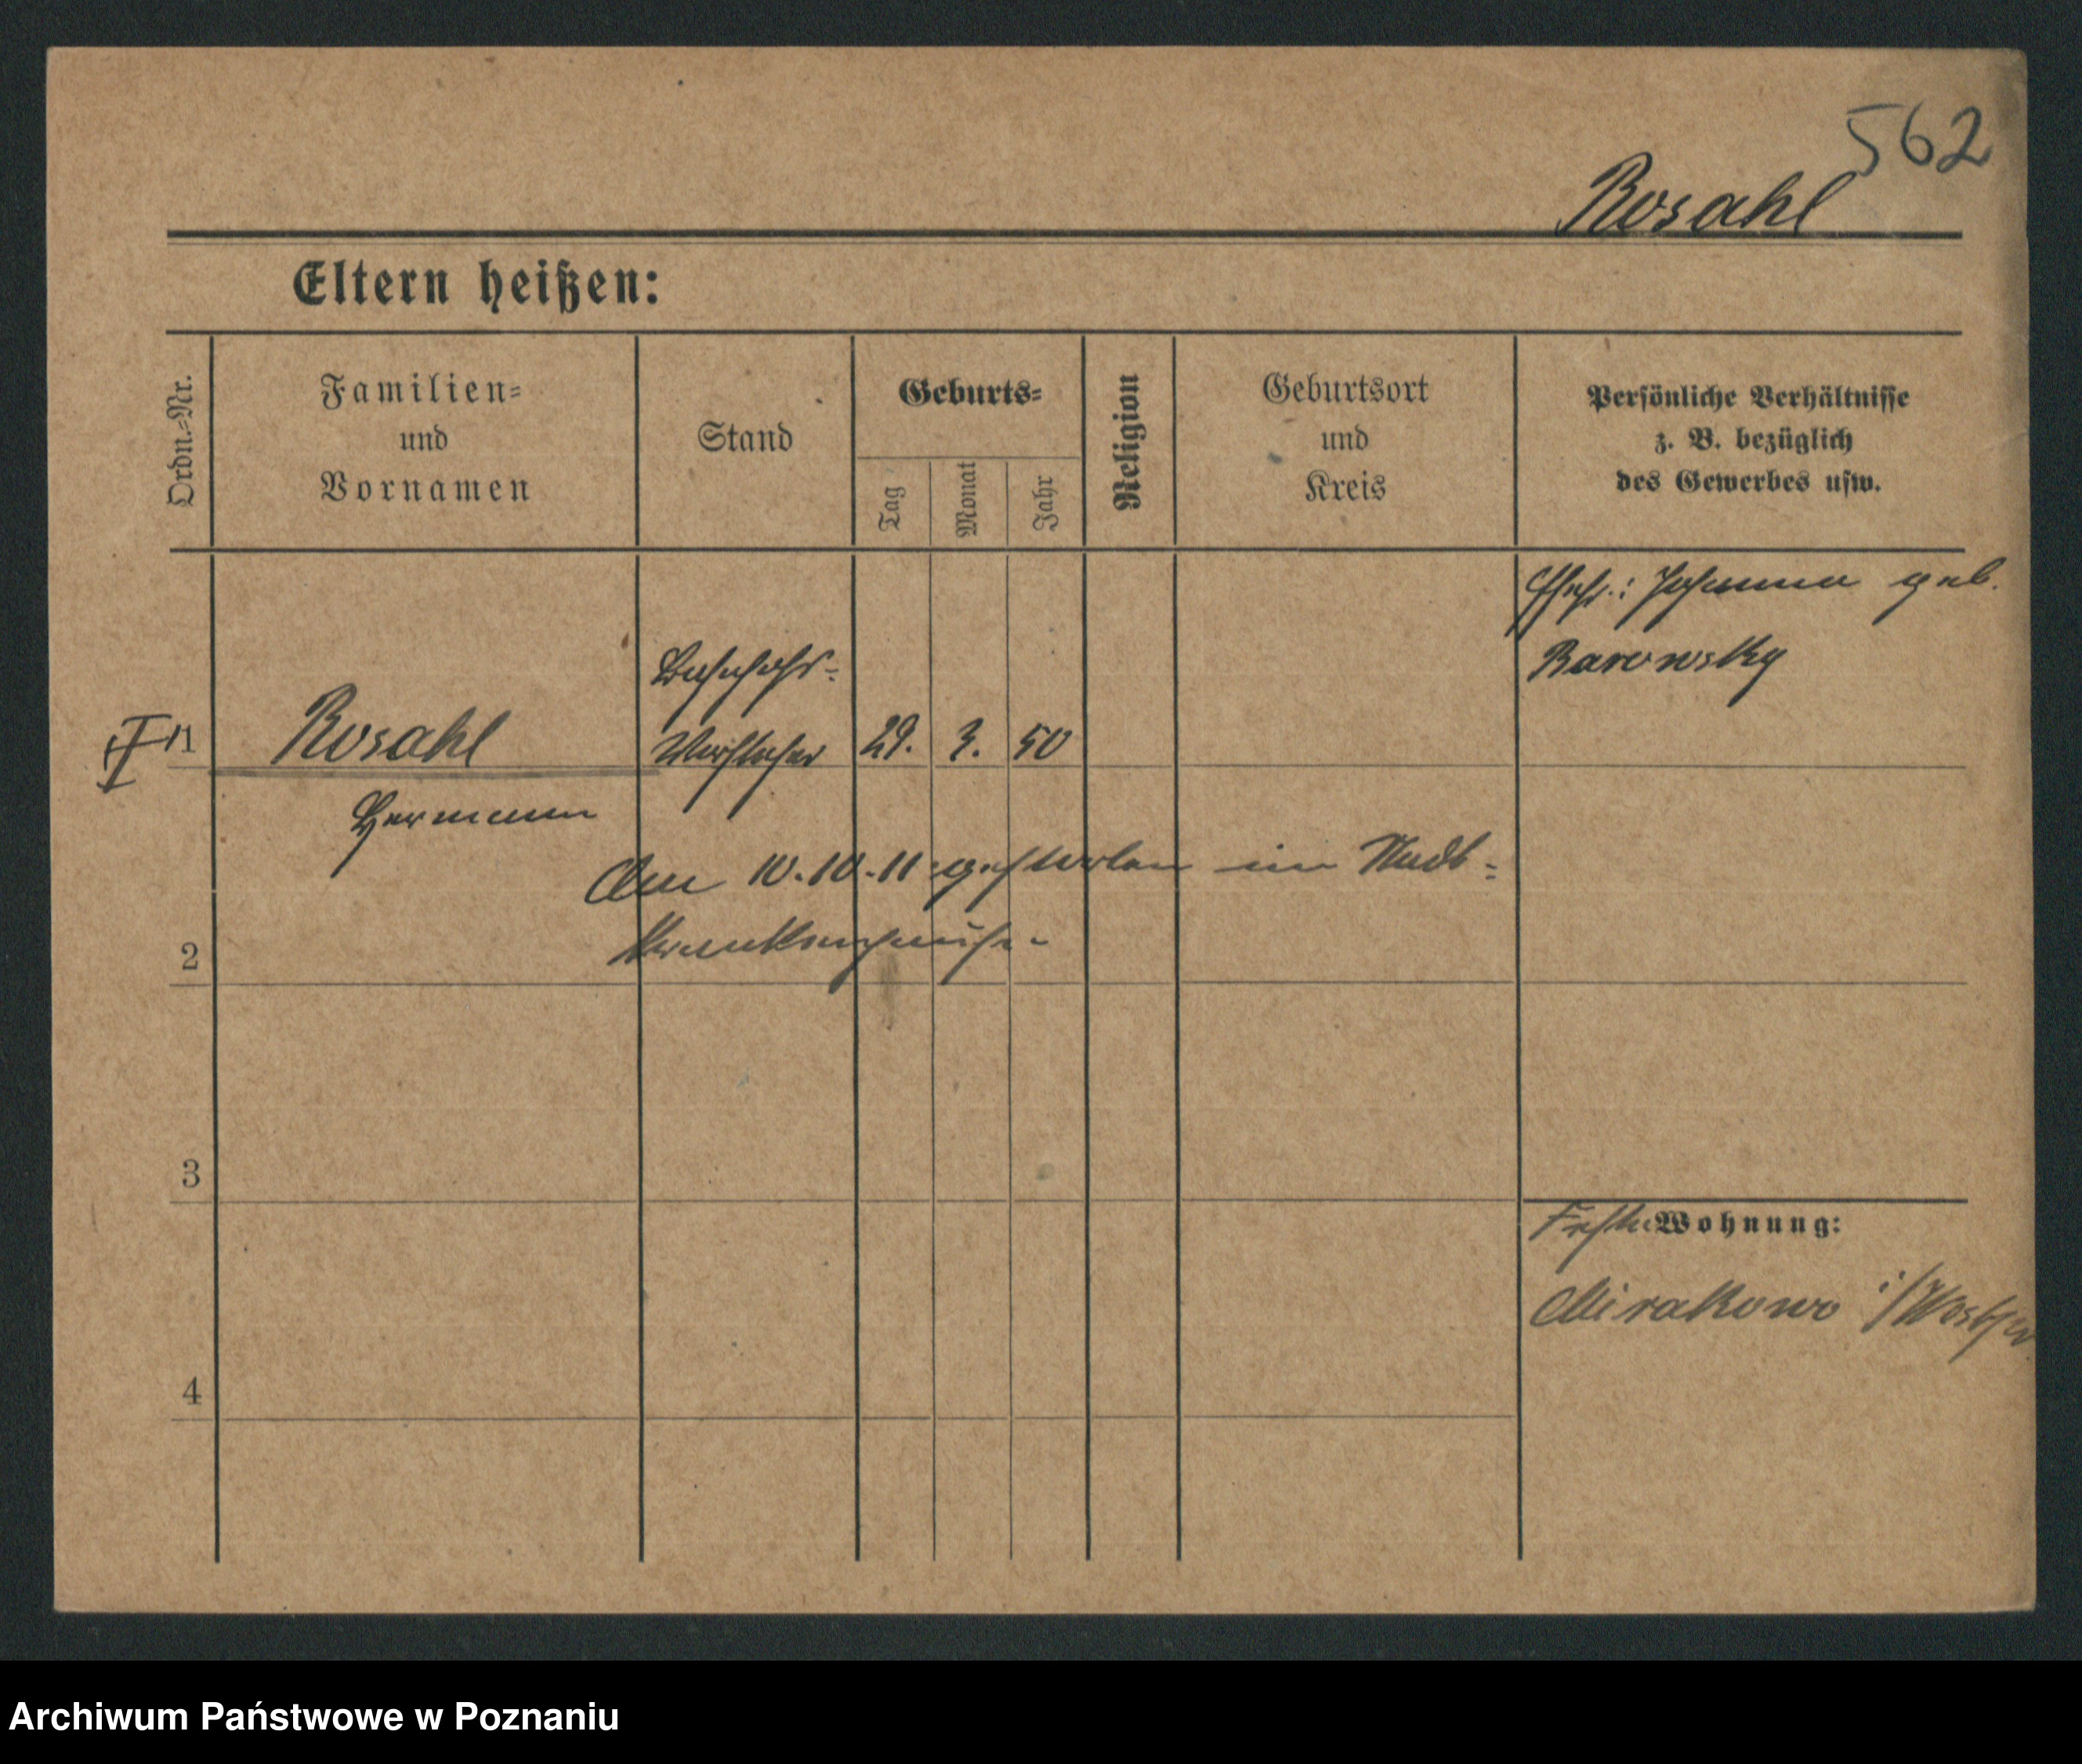 562
Rosahl
Eltern heißen:
Ordn.-Nr.
Familien-
und
Vornamen
Stand
Geburts-
Tag
Monat
Jahr
Religion
Geburtsort
und
Kreis
Persönliche Verhältnisse
z. B. bezüglich
des Gewerbes usw.
Ehefr.: Johanna geb.
Barowsky
1
Rosahl
Hermann
Bahnhofs-
Vorsteher
29. 3. 50
Am 10.10.11 gestorben im Stadt-
krankenhause.
2
3
4
Wohnung:
Mirakowo i/Westpr
Archiwum Państwowe w Poznaniu